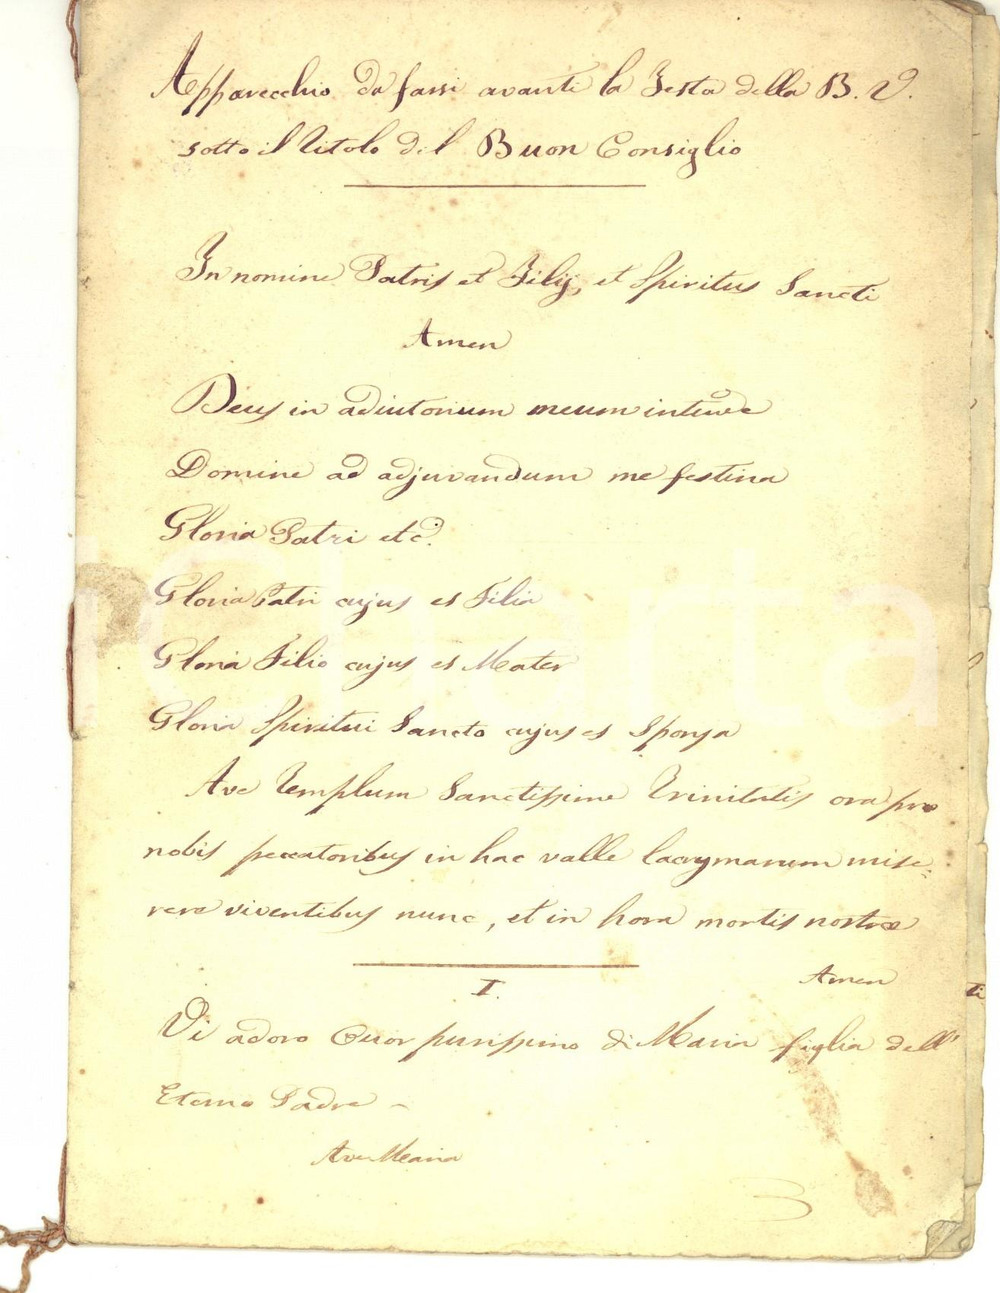 Apparecchio da farsi avanti la Festa della B. V.
sotto il Titolo del Buon Consiglio
In nomine Patris et Filij, et Spiritus Sancti
Amen
Deus in adiutorium meum intende
Domine ad adjuvandum me festina
Gloria Patri etc.
Gloria Patri cujus es Filia
Gloria Filio cujus es Mater
Gloria Spiritui Sancto cujus es Sponsa
Ave Templum Sanctissime Trinitatis ora pro
nobis peccatoribus in hac valle lacrymarum mise-
rere viventibus nunc, et in hora mortis nostrae
Amen
I.
Vi adoro Cuor purissimo di Maria figlia dell'
Eterno Padre
Ave Maria